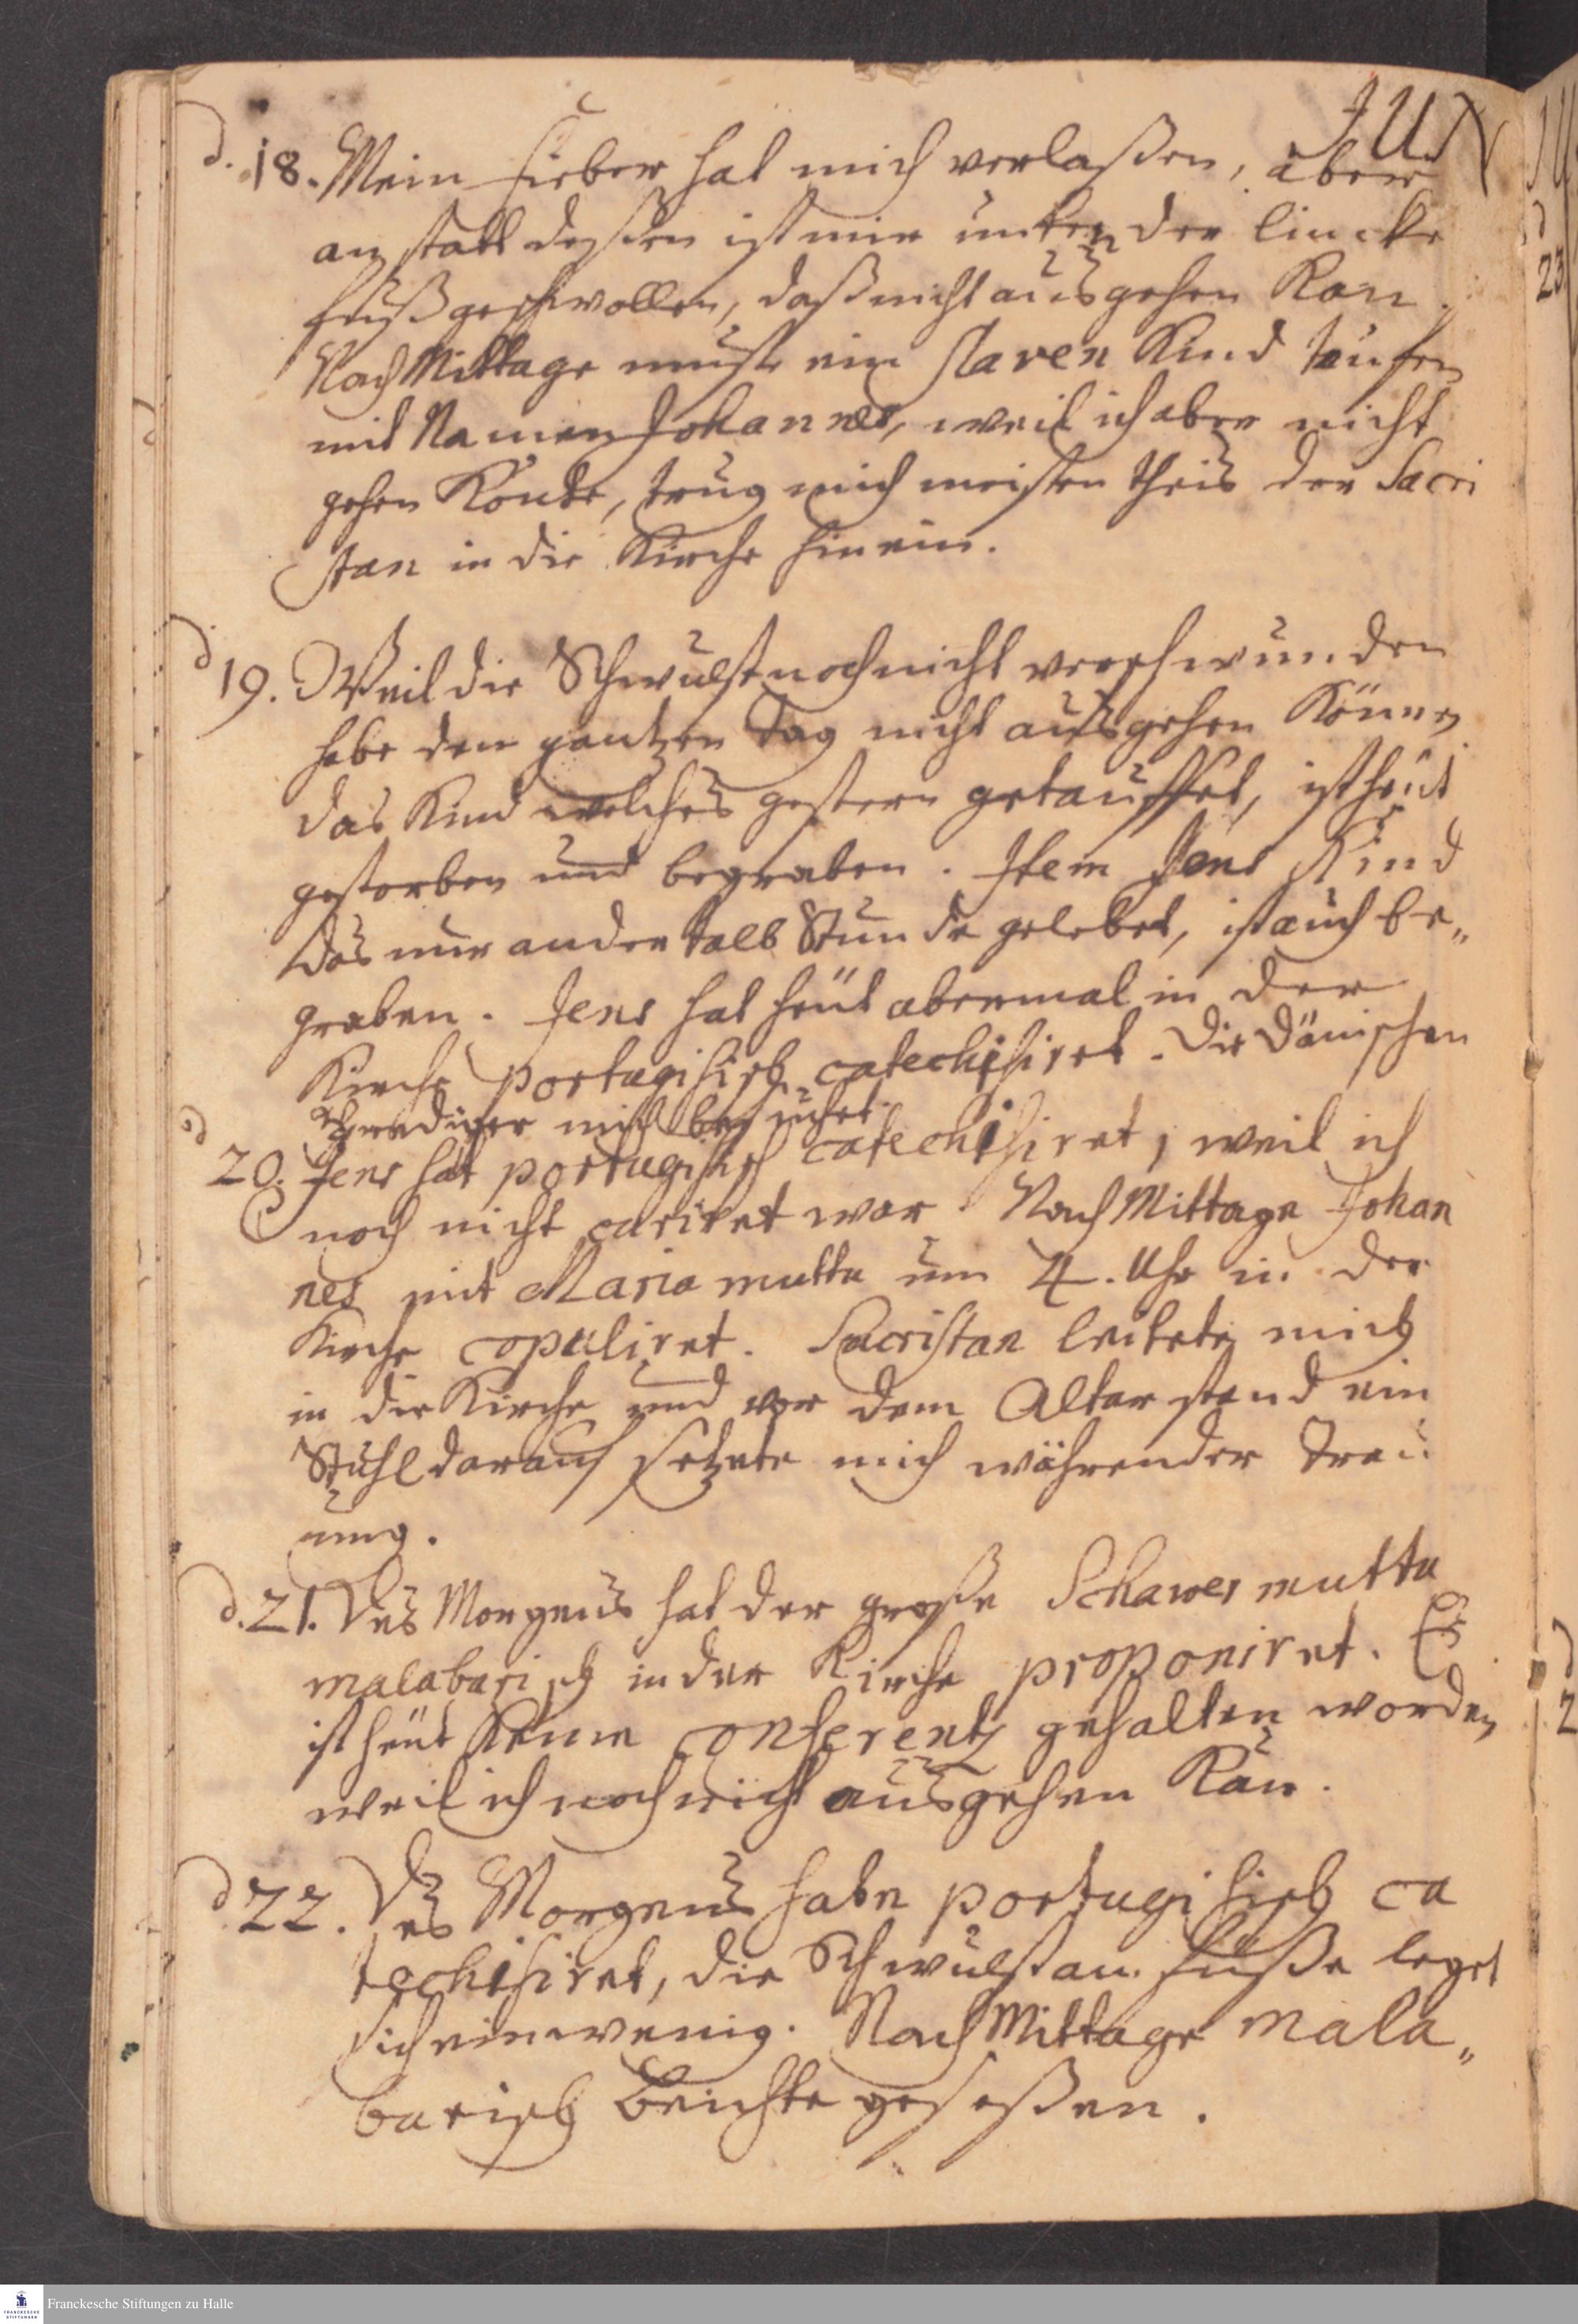 JUN
d. 18. Mein Fieber hat mich verlaßen, aber
an statt deßen ist mir unten der lincke
Fuß geschwollen, daß nicht ausgehen kan.
Nach Mittage muste ein Slaven Kind taufen
mit Namen Johannes, weil ich aber nicht
gehen konte, trug mich meisten theils der Sacri
stan in die Kirche hinein.
d 19. Weil die Schwulst noch nicht verschwunden
habe den gantzen Tag nicht ausgehen können
das Kind welches gestern getauffet, ist heut
gestorben und begraben. Item Jens Kind
das nur andertalb Stunde gelebet, ist auch be„
graben. Jens hat heut abermal in der
Kirche portugisisch catechisiret. Die Dänischen
Prediger mich besuchet.
d 20. Jens hat portugisisch catechisiret, weil ich
noch nicht curiret war. Nach Mittage Johan
nes mit Maria muttu um 4. Uhr in der
Kirche copuliret. Sacristan leitete mich
in die Kirche und vor dem Altar stand ein
Stuhl darauf setzete mich währender Trau
ung.
d. 21. Des Morgens hat der große Schawer muttu
malabarisch in der Kirche proponiret. Es
ist heut keine Conferentz gehalten worden
weil ich noch nicht ausgehen kan.
d 22. Des Morgens habe portugisisch ca
techisiret, die Schwulst am Fuße leget
sich ein wenig. Nach Mittage mala„
barisch Beichte geseßen.
Franckesche Stiftungen zu Halle